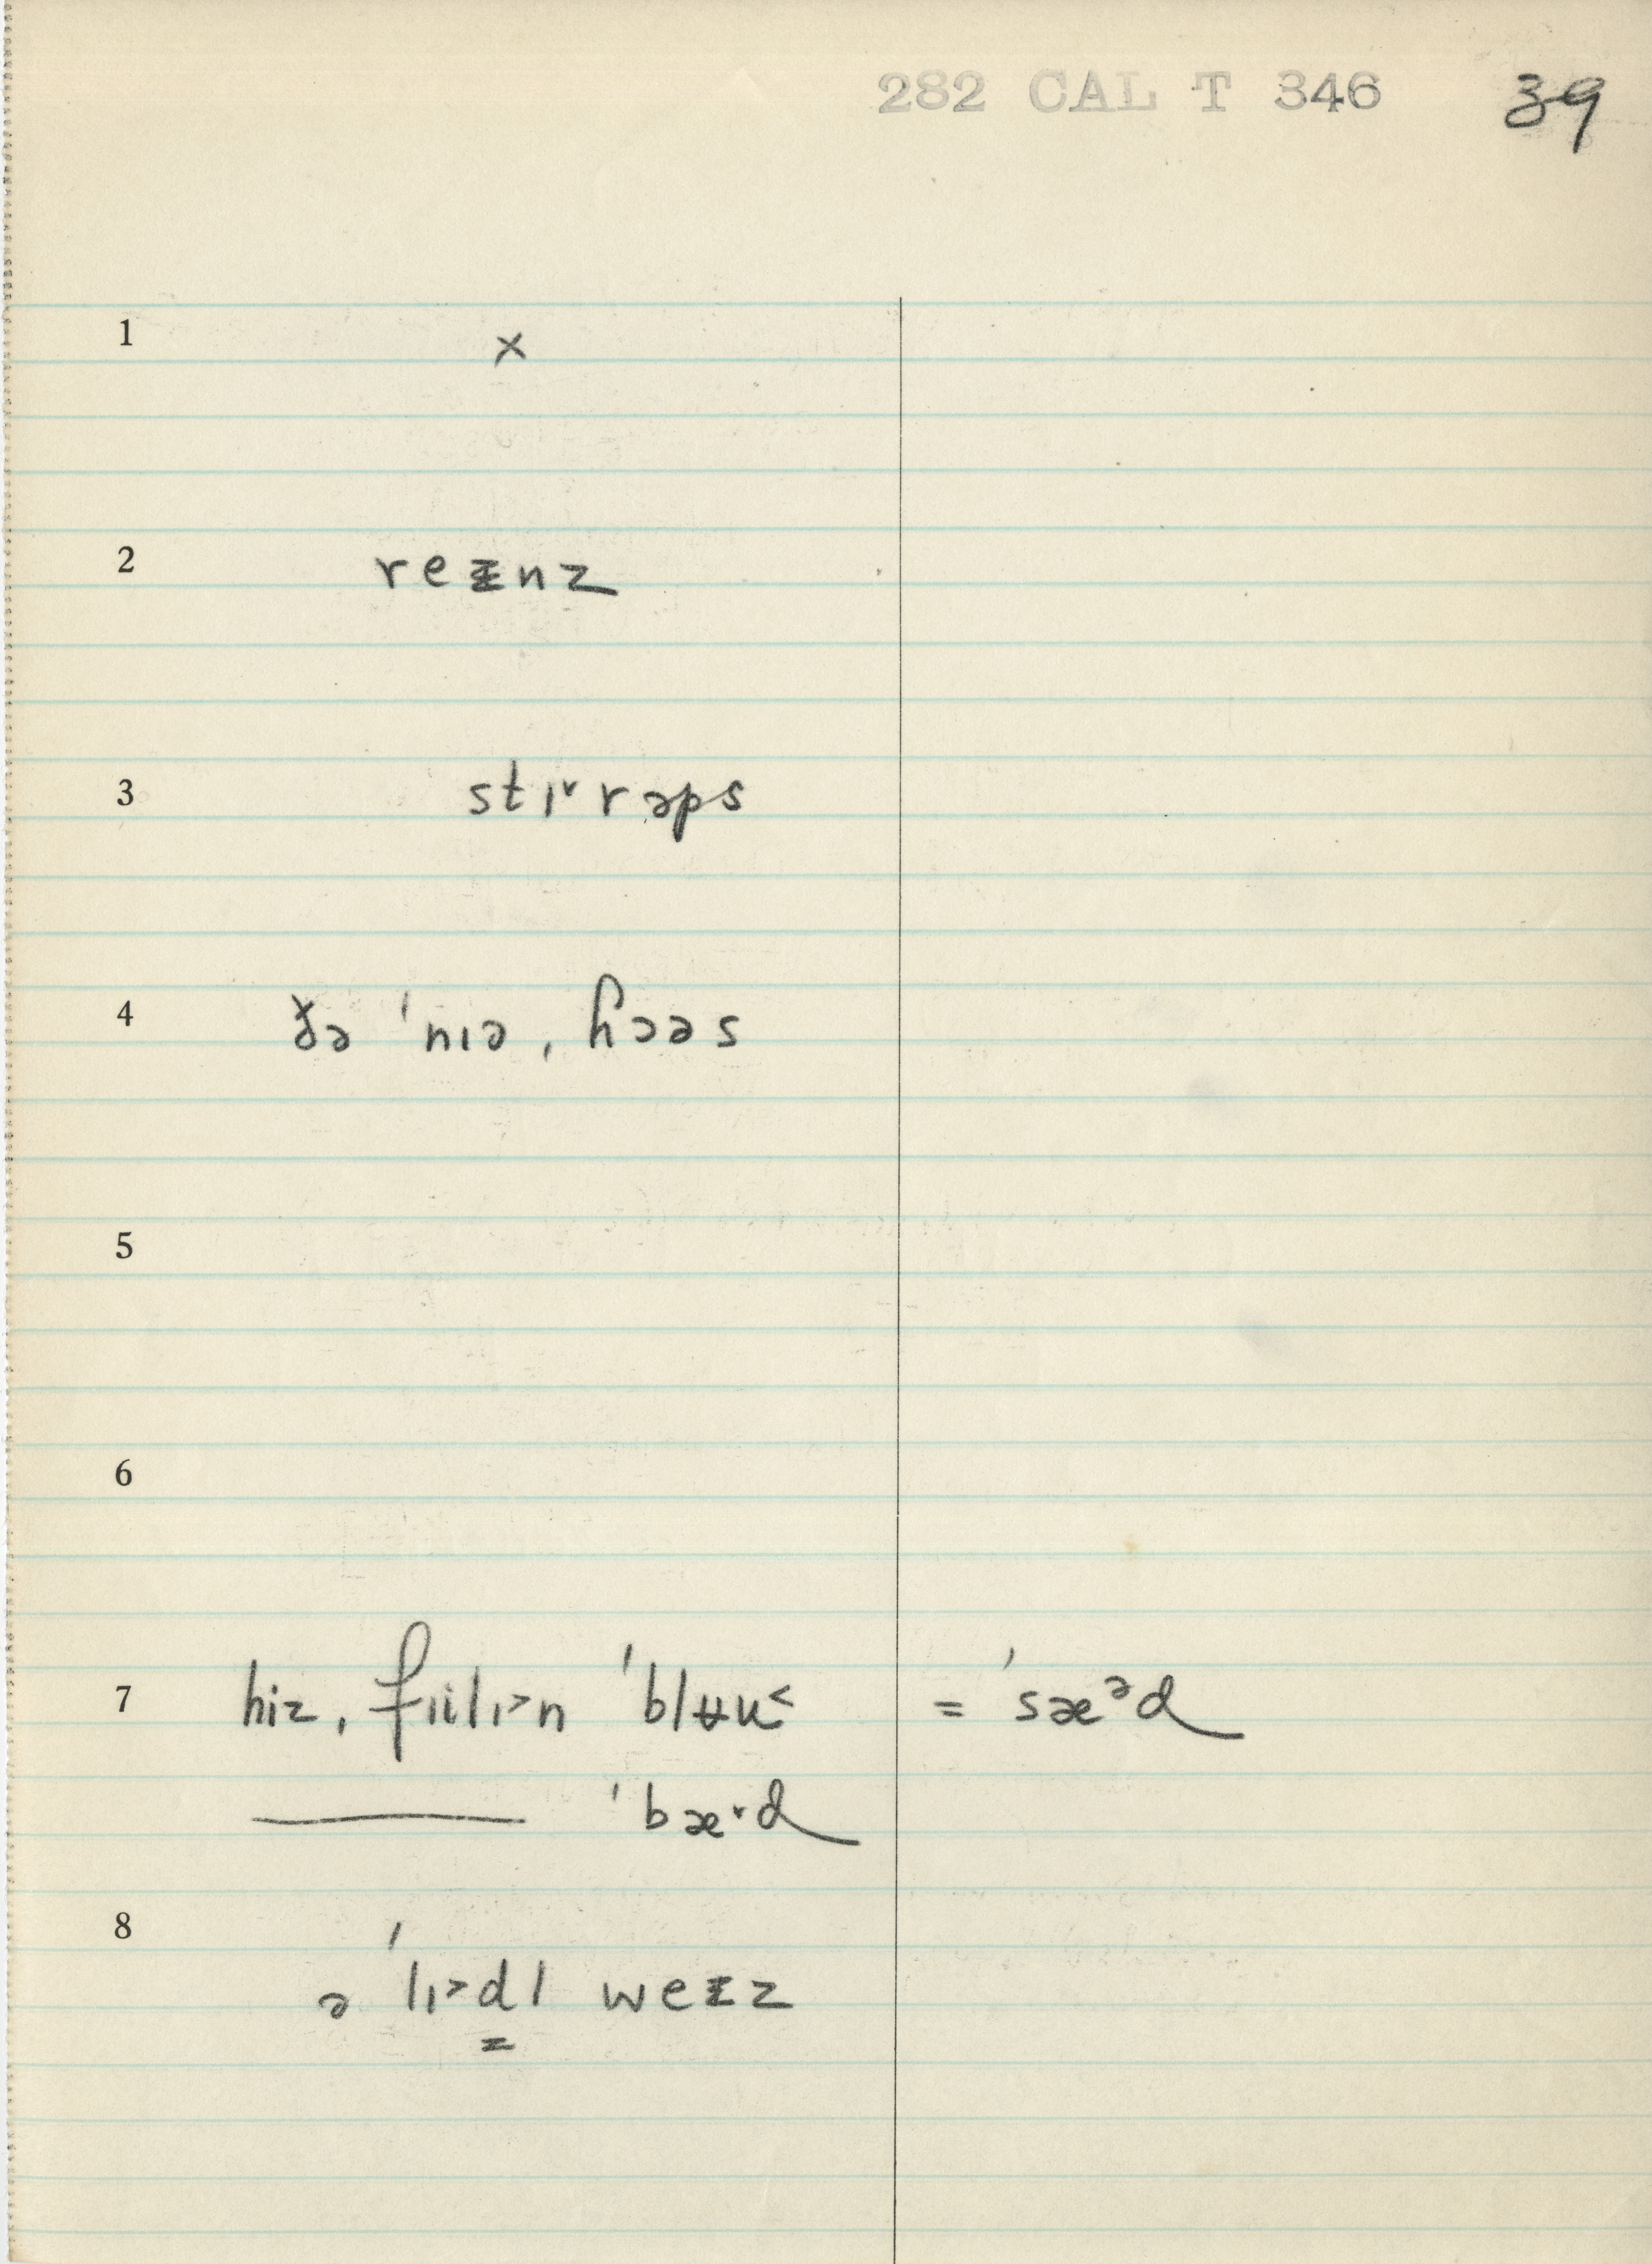 282 CAL T 346 39
1 ×
2 reᵻnz
3 stɪ˅rəps
4 ðə ˈnɪə ˌɦɔəs
5
6
7 hiz ˌfɪilɪ˃n ˈblʉu˂ = ˈsæᵊd
——— ˈbæ˅d
8 ə ˈlɪ˃d̳l weᵻz